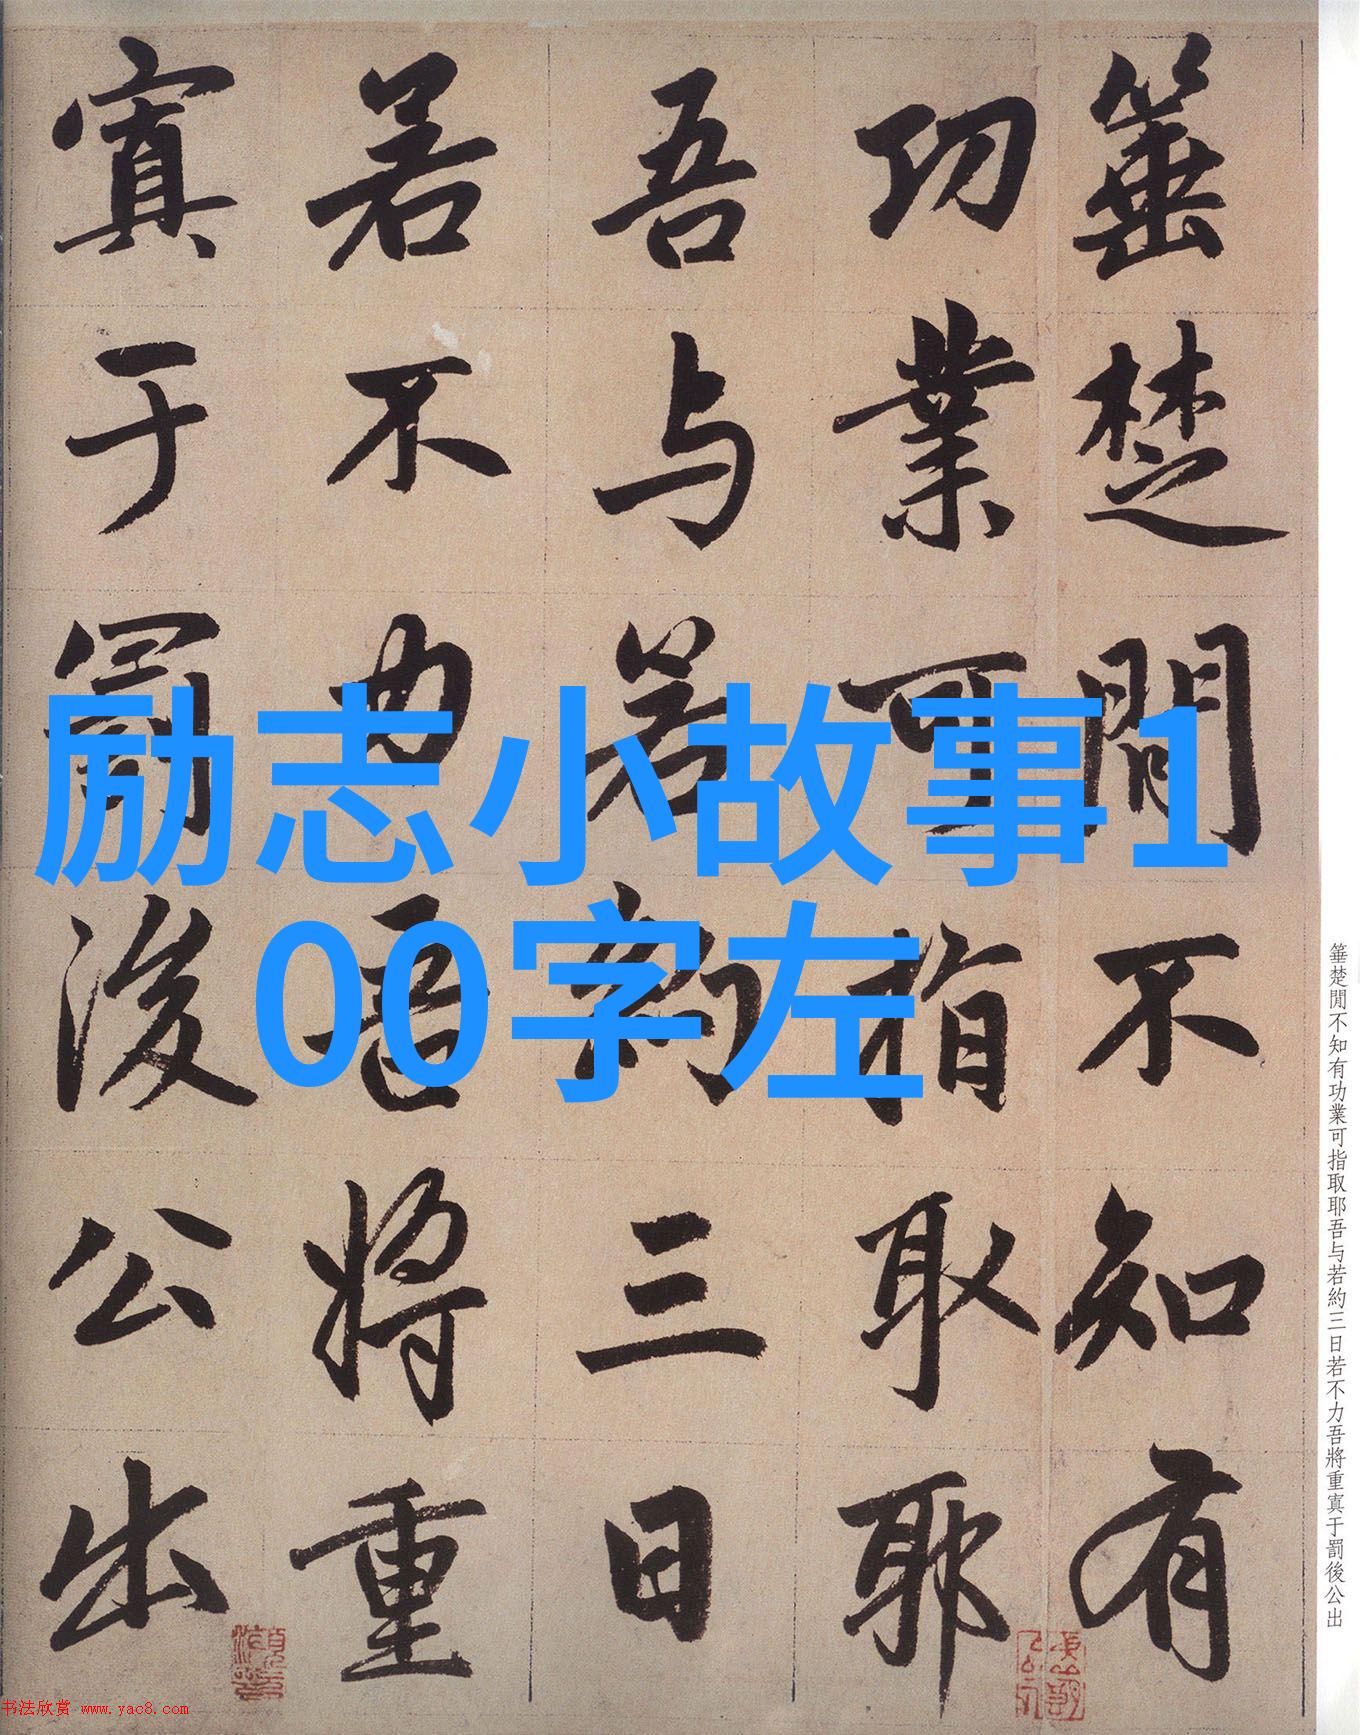 箠楚間不知有
功業可指取耶
吾与若約三日
若不力吾將重
寘于罰後公出
励志小故事1
00字左
箠楚閒不知有功業可指取耶吾与若約三日若不力吾將重寘于罰後公出
书法欣赏 www.yac8.com